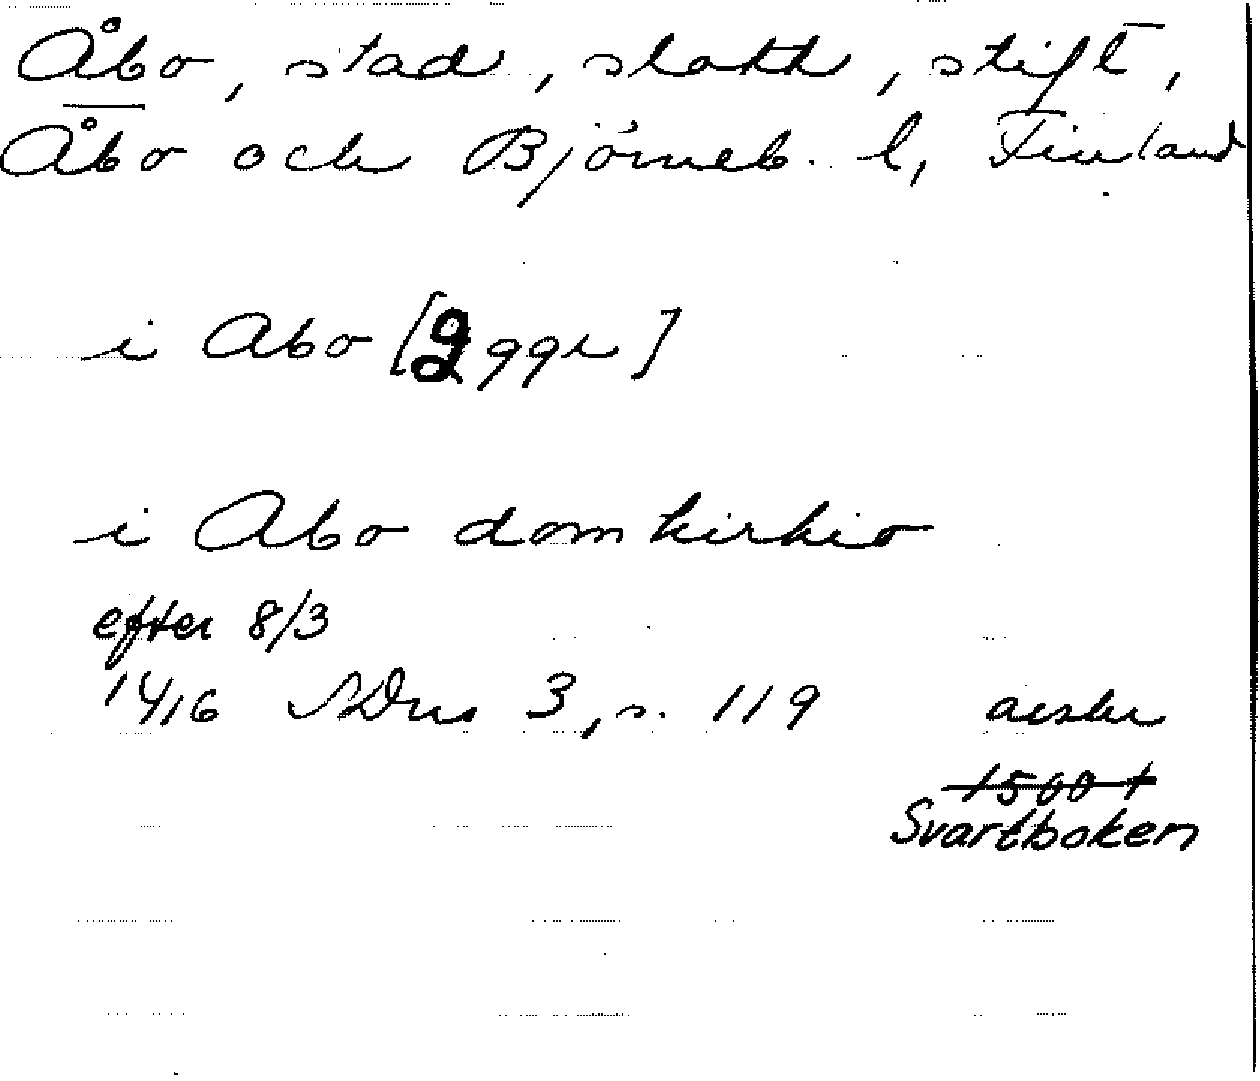 Åbo, stad, slott, stift,
Åbo och Björneb. l, Finland
i Abo [2 ggr]
i Abo domkirkio
efter 8/3
1416 SDns 3, s. 119 avskr
1500 t
Svartboken